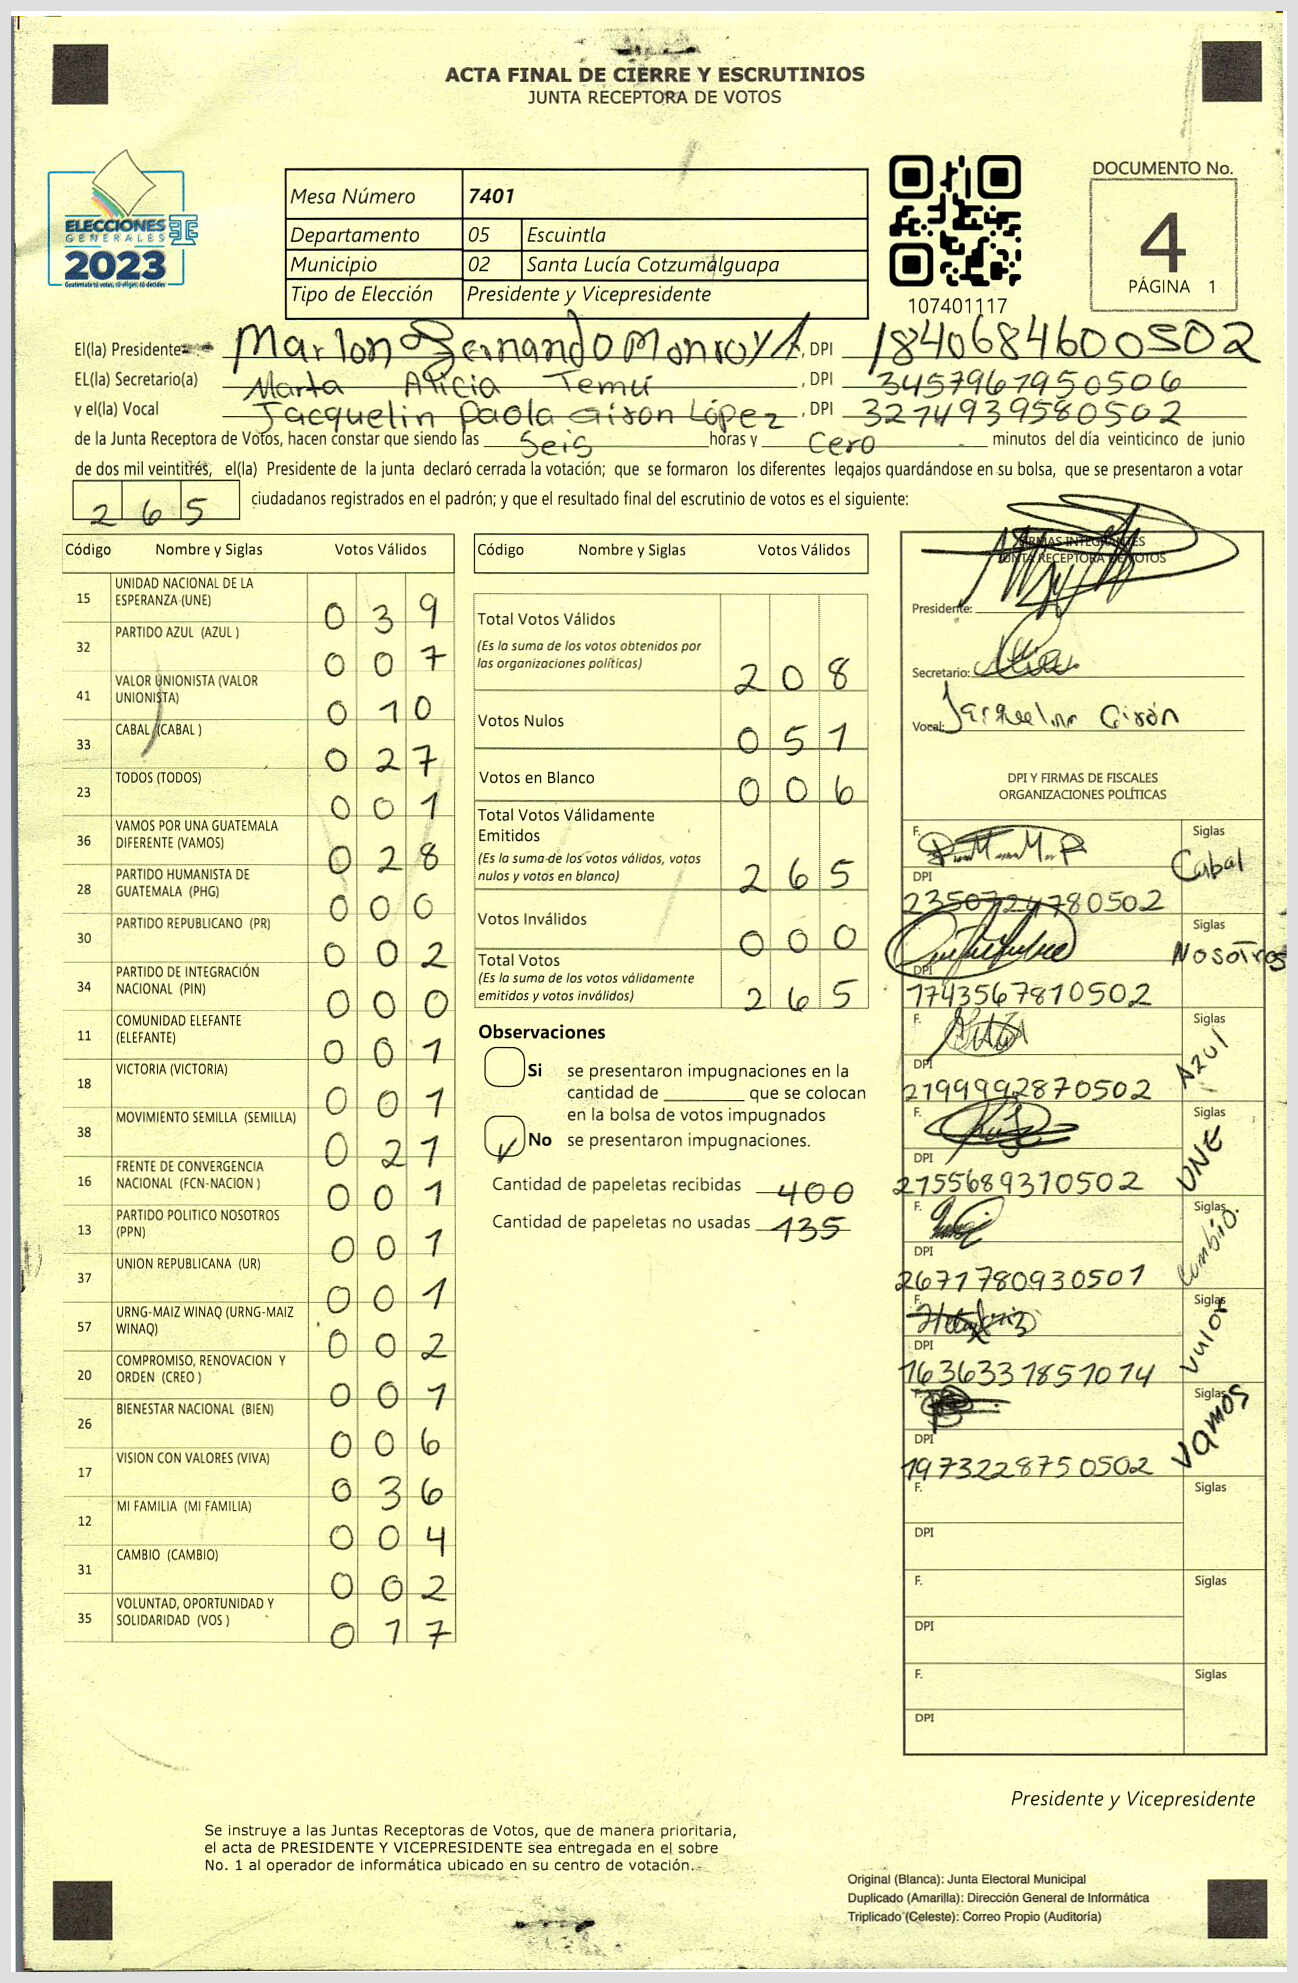 ACTA FINAL DE CIERRE Y ESCRUTINIOS
JUNTA RECEPTORA DE VOTOS
ELECCIONES
GENERALES
2023
Guatemala tú votas, tú eliges, tú decides
Mesa Número 7401
Departamento 05 Escuintla
Municipio 02 Santa Lucía Cotzumalguapa
Tipo de Elección Presidente y Vicepresidente
107401117
DOCUMENTO No.
4
PÁGINA 1
El(la) Presidente Marlon Fernando Monroy A, DPI 1840684600502
EL(la) Secretario(a) Marta Alicia Temú, DPI 3457967950506
y el(la) Vocal Jacquelin Paola Girón López, DPI 3274939580502
de la Junta Receptora de Votos, hacen constar que siendo las Seis horas y Cero minutos del día veinticinco de junio
de dos mil veintitrés, el(la) Presidente de la junta declaró cerrada la votación; que se formaron los diferentes legajos guardándose en su bolsa, que se presentaron a votar
265 ciudadanos registrados en el padrón; y que el resultado final del escrutinio de votos es el siguiente:
Código Nombre y Siglas Votos Válidos
15 UNIDAD NACIONAL DE LA ESPERANZA (UNE) 039
32 PARTIDO AZUL (AZUL ) 007
41 VALOR UNIONISTA (VALOR UNIONISTA) 010
33 CABAL (CABAL ) 027
23 TODOS (TODOS) 001
36 VAMOS POR UNA GUATEMALA DIFERENTE (VAMOS) 028
28 PARTIDO HUMANISTA DE GUATEMALA (PHG) 000
30 PARTIDO REPUBLICANO (PR) 002
34 PARTIDO DE INTEGRACIÓN NACIONAL (PIN) 000
11 COMUNIDAD ELEFANTE (ELEFANTE) 001
18 VICTORIA (VICTORIA) 001
38 MOVIMIENTO SEMILLA (SEMILLA) 021
16 FRENTE DE CONVERGENCIA NACIONAL (FCN-NACION ) 001
13 PARTIDO POLITICO NOSOTROS (PPN) 001
37 UNION REPUBLICANA (UR) 001
57 URNG-MAIZ WINAQ (URNG-MAIZ WINAQ) 002
20 COMPROMISO, RENOVACION Y ORDEN (CREO ) 001
26 BIENESTAR NACIONAL (BIEN) 006
17 VISION CON VALORES (VIVA) 036
12 MI FAMILIA (MI FAMILIA) 004
31 CAMBIO (CAMBIO) 002
35 VOLUNTAD, OPORTUNIDAD Y SOLIDARIDAD (VOS ) 017
Código Nombre y Siglas Votos Válidos
Total Votos Válidos
(Es la suma de los votos obtenidos por
las organizaciones políticas) 208
Votos Nulos 051
Votos en Blanco 006
Total Votos Válidamente
Emitidos
(Es la suma de los votos válidos, votos
nulos y votos en blanco) 265
Votos Inválidos 000
Total Votos
(Es la suma de los votos válidamente
emitidos y votos inválidos) 265
Observaciones
Si se presentaron impugnaciones en la
cantidad de ________ que se colocan
en la bolsa de votos impugnados
No se presentaron impugnaciones.
Cantidad de papeletas recibidas 400
Cantidad de papeletas no usadas 135
FIRMAS INTEGRANTES
JUNTA RECEPTORA DE VOTOS
Presidente:
Secretario:
Vocal: Jacquelin Girón
DPI Y FIRMAS DE FISCALES
ORGANIZACIONES POLÍTICAS
F. Siglas Cabal
DPI 2350724780502
Siglas Nosotros
DPI 1743567810502
F. Siglas Azul
DPI 2199992870502
F. Siglas UNE
DPI 2155689310502
F. Siglas Cambio.
DPI 2671780930501
F. Siglas Valor
DPI 1636331851014
F. Siglas Vamos
DPI 1973228750502
F. Siglas
DPI
F. Siglas
DPI
F. Siglas
DPI
Presidente y Vicepresidente
Se instruye a las Juntas Receptoras de Votos, que de manera prioritaria,
el acta de PRESIDENTE Y VICEPRESIDENTE sea entregada en el sobre
No. 1 al operador de informática ubicado en su centro de votación.
Original (Blanca): Junta Electoral Municipal
Duplicado (Amarilla): Dirección General de Informática
Triplicado (Celeste): Correo Propio (Auditoría)